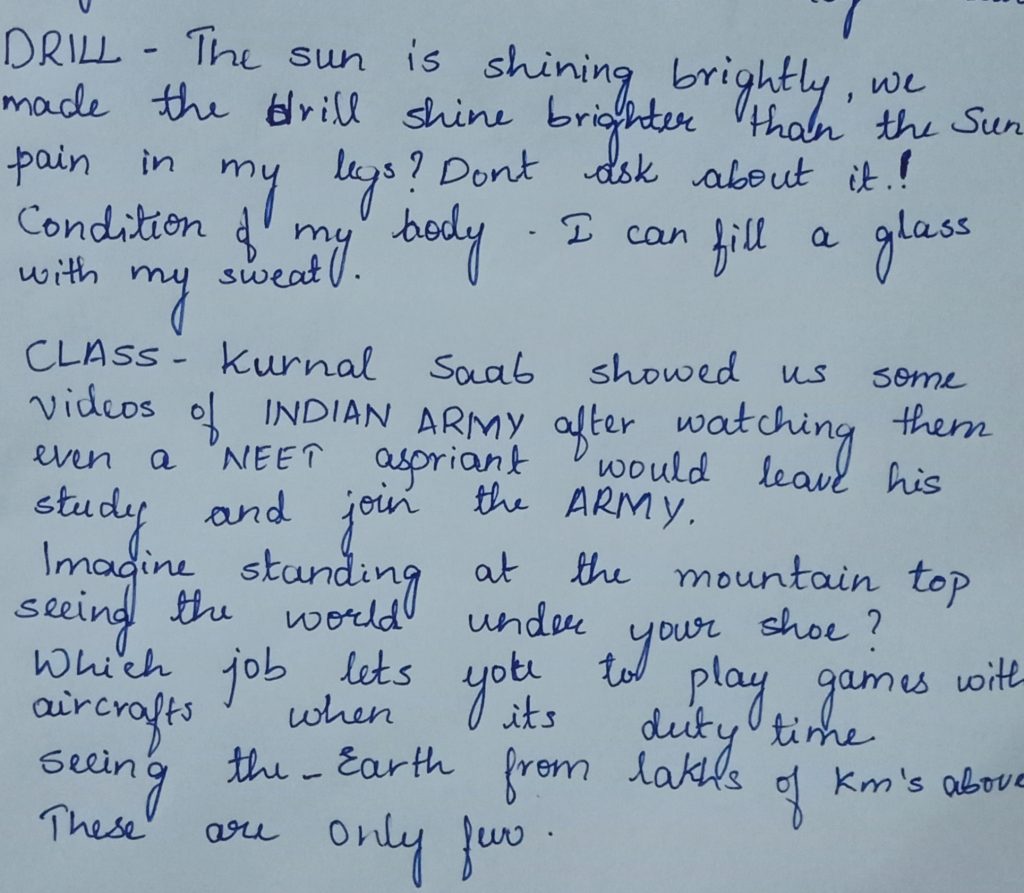 DRILL - The sun is shining brightly, we
made the drill shine brighter than the Sun
pain in my legs? Dont ask about it.!
Condition of my body - I can fill a glass
with my sweat.
CLASS - Kurnal Saab showed us some
videos of INDIAN ARMY after watching them
even a NEET aspriant would leave his
study and join the ARMY.
Imagine standing at the mountain top
seeing the world under your shoe?
Which job lets you to play games with
aircrafts when its duty time
seeing the - Earth from lakhs of Km's above
These are only few.